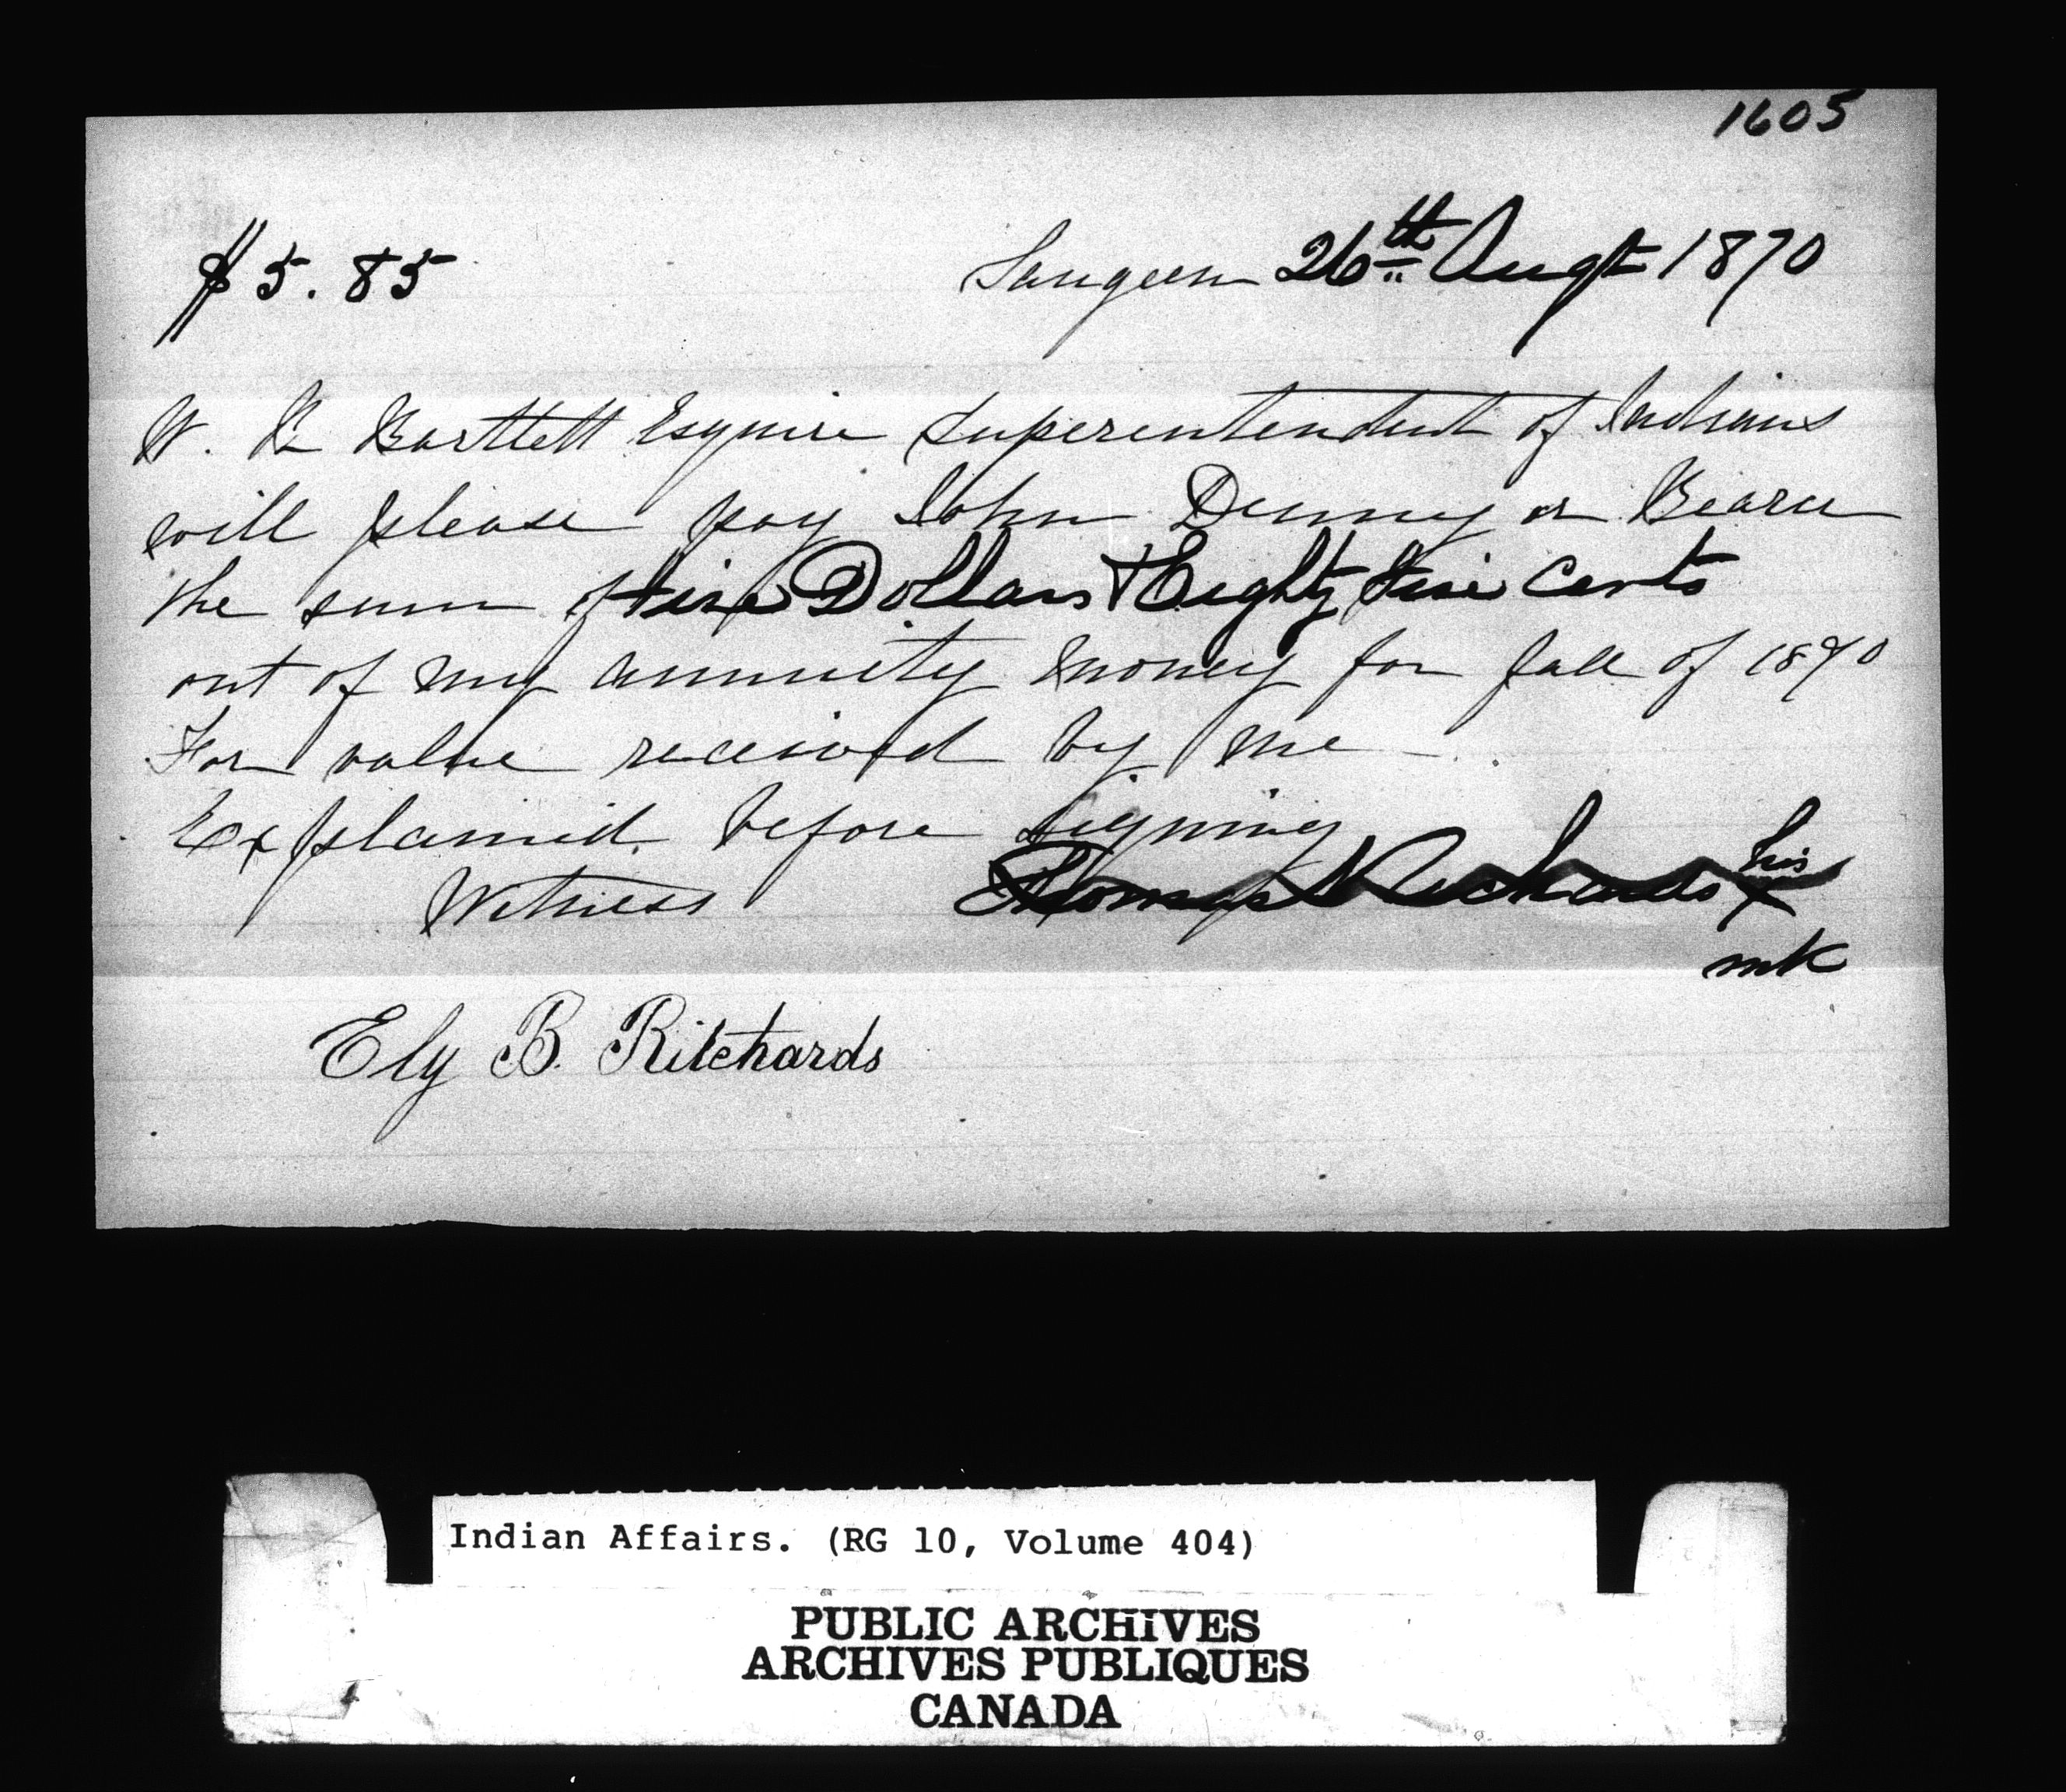 1605
$5.85 Saugeen 26th Augt 1870
W. R Bartlett Esquire Superentendent of Indians
will please pay John Denny or Bearer
the sum of five Dollars & Eighty five Cents
out of my annuity money for fall of 1870
For value received by me
Explained before signing
Witness Thomas Richards his X
mk
Ely B. Ritchards
Indian Affairs. (RG 10, Volume 404)
PUBLIC ARCHIVES
ARCHIVES PUBLIQUES
CANADA